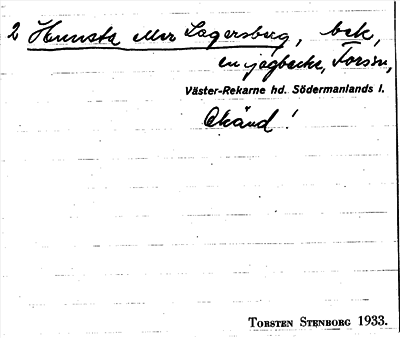 2 Hunsta eller Lagersberg, bek,
en jägbacke, Forssa,
Väster-Rekarne hd. Södermanlands l.
Okänd!
TORSTEN STENBORG 1933.